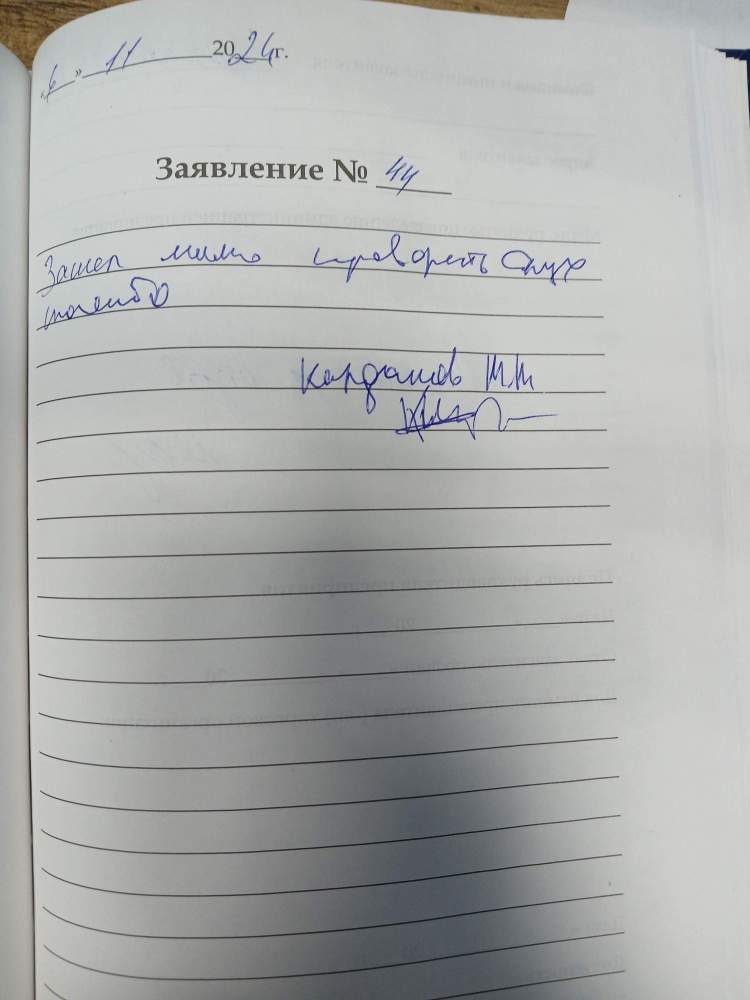 «6» 11 2024г.
Заявление № 44
Зашел мимо проверить слух
спасибо
Кардашов М.М